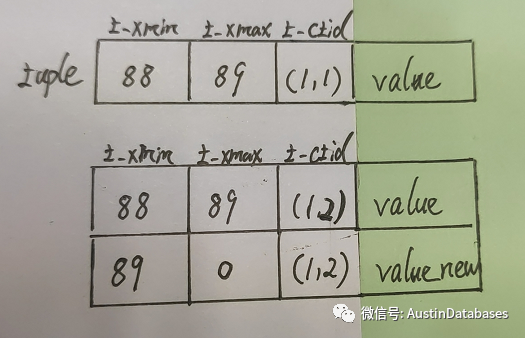 t-xmin t-xmax t-ctid
tuple 88 89 (1,1) value
t-xmin t-xmax t-ctid
88 89 (1,2) value
89 0 (1,2) value new
微信号: AustinDatabases